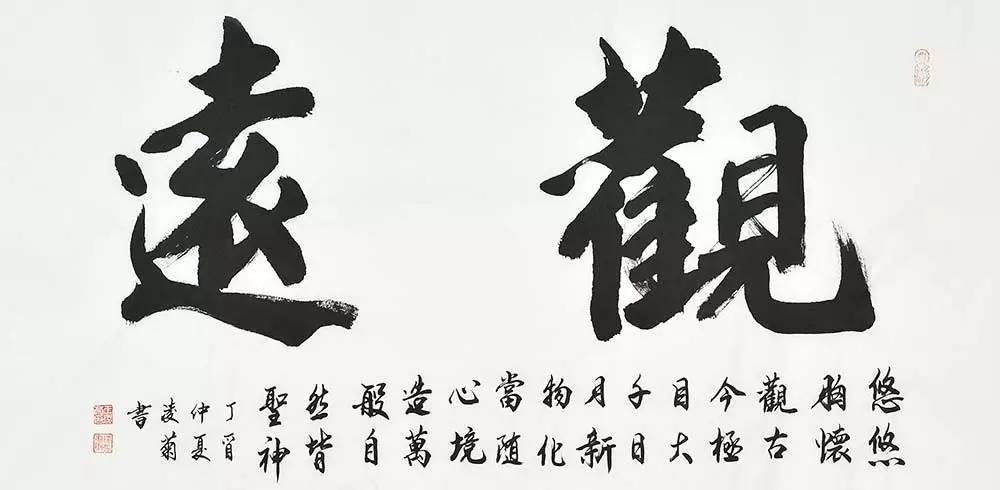 觀遠
悠悠
胸懷
觀古
今極
目大
千日
月新
物化
當随
心境
造萬
般自
然皆
聖神
丁酉
仲夏
凌菊
書